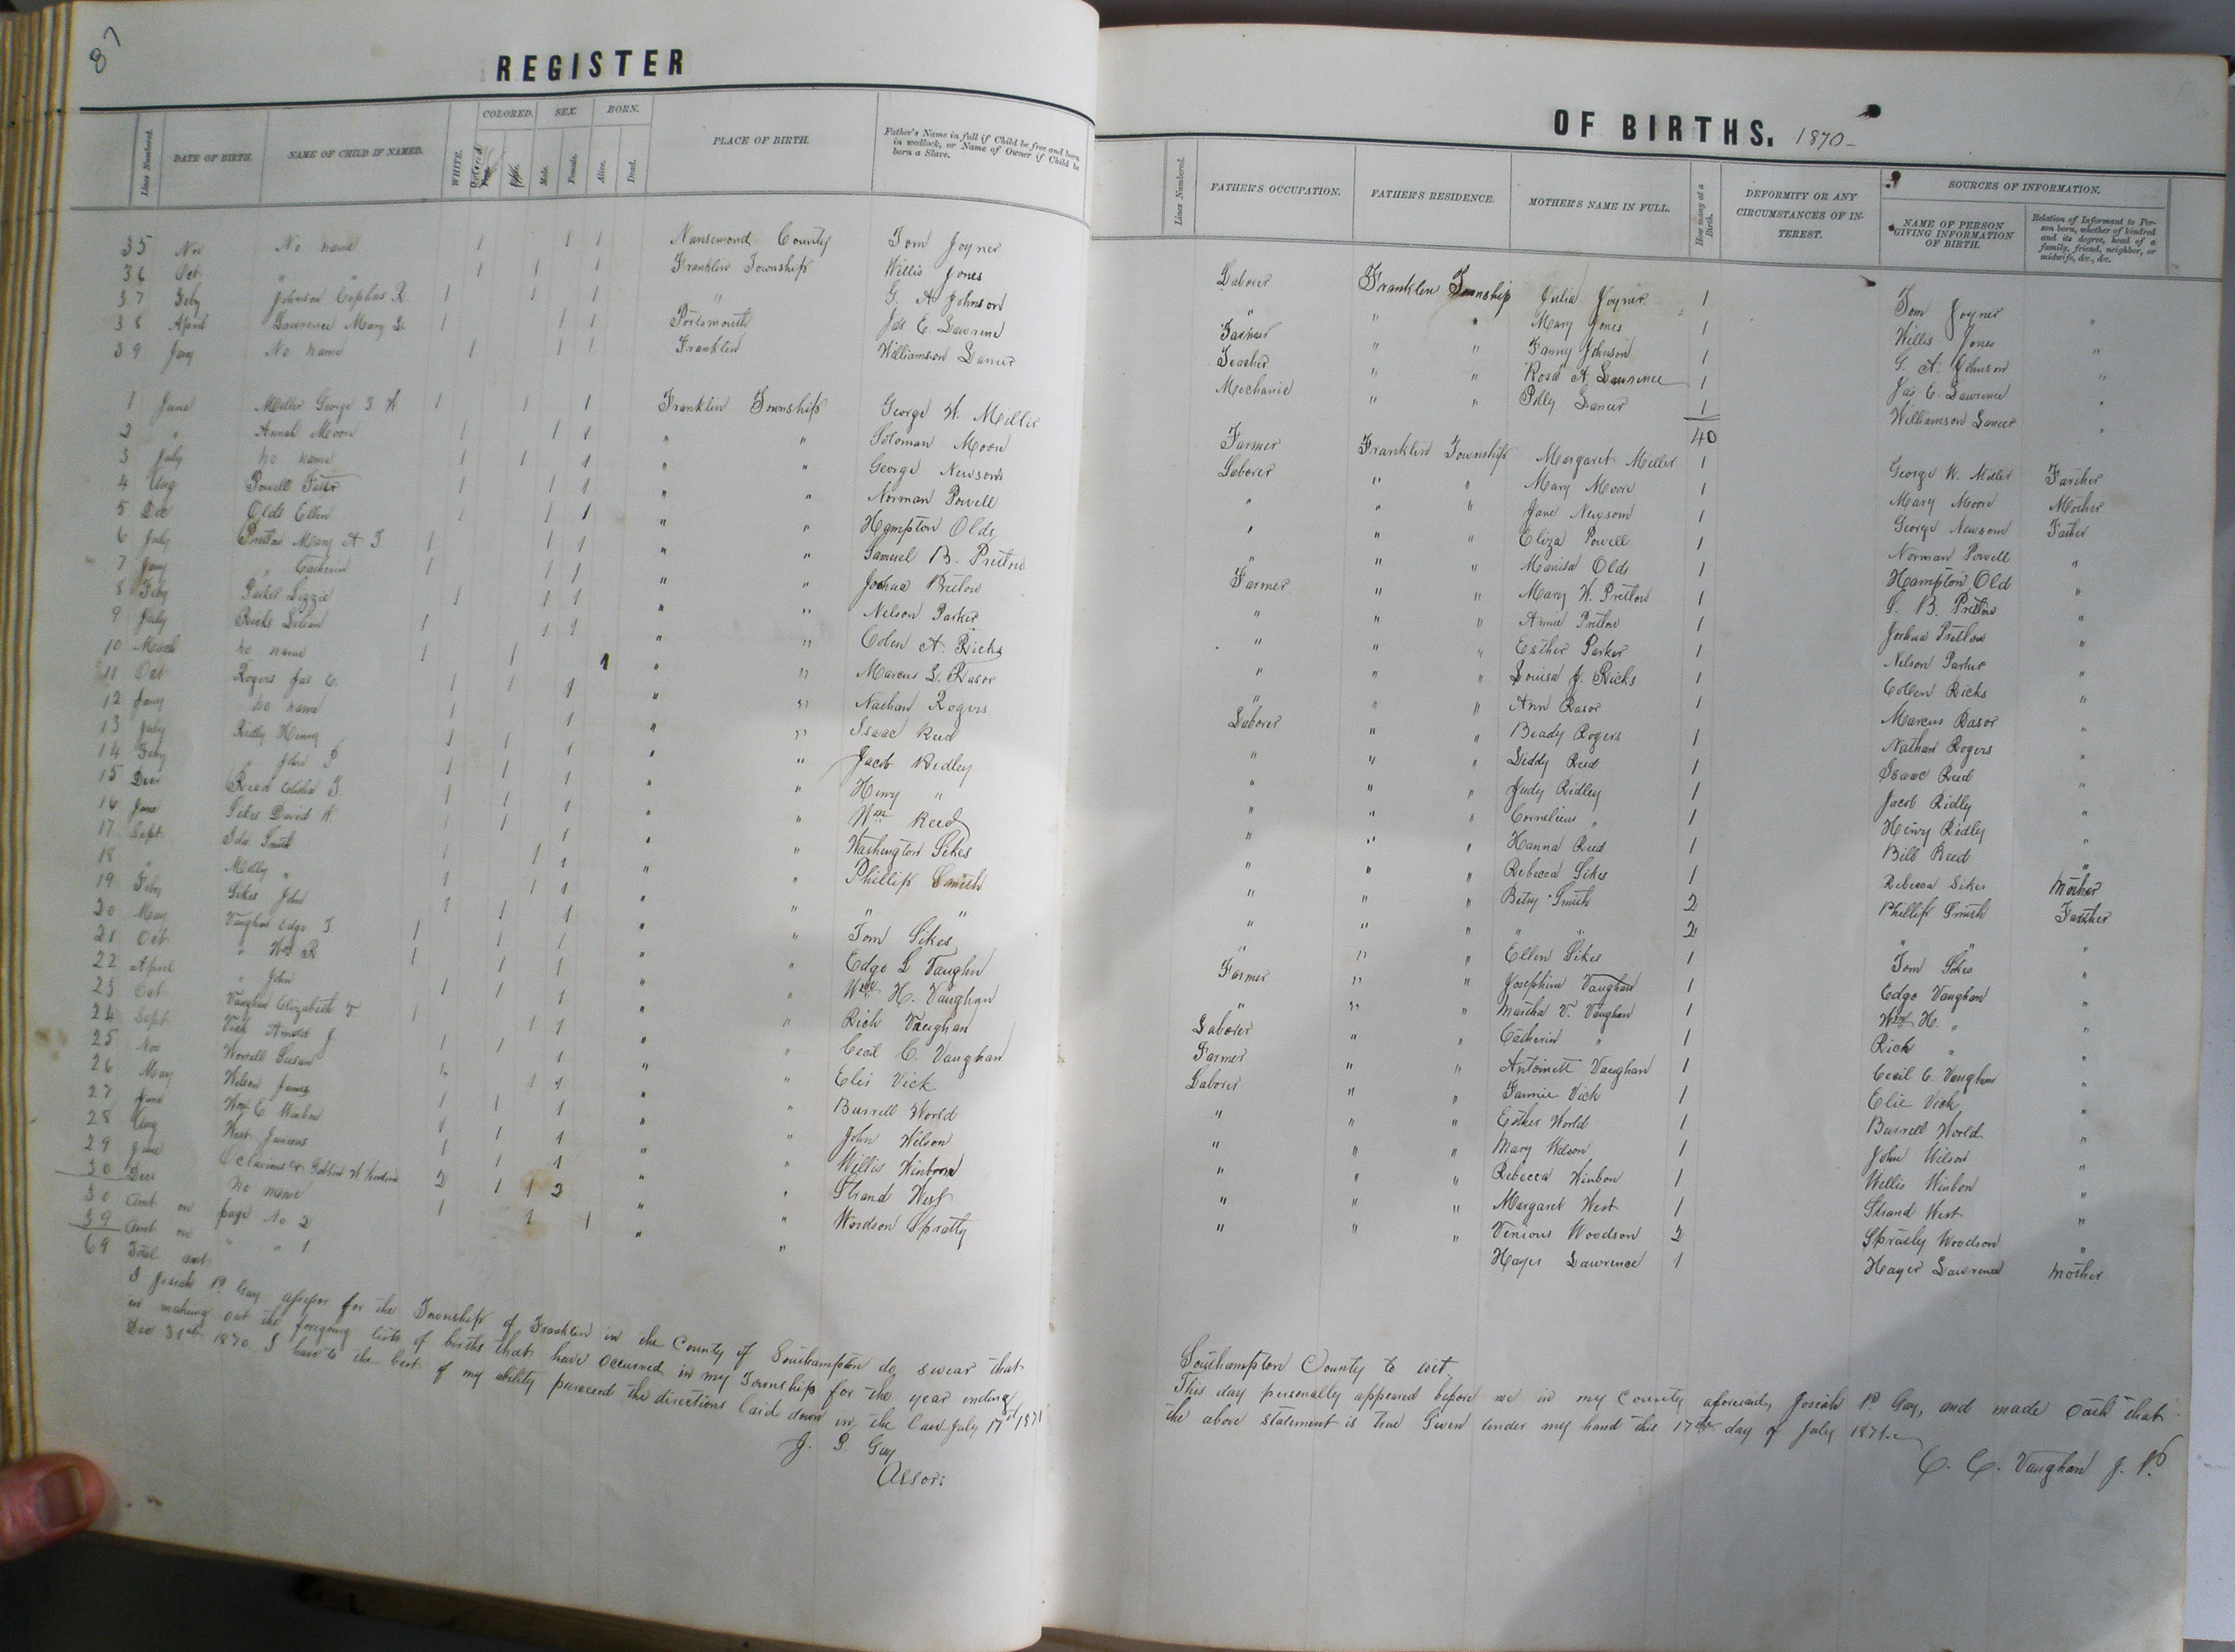 87
REGISTER
COLORED. SEX. BORN.
Lines Numbered. DATE OF BIRTH. NAME OF CHILD IF NAMED. WHITE. Male. Female. Alive. Dead. PLACE OF BIRTH. Father's Name in full if Child be free and born in wedlock, or Name of Owner if Child be born a Slave.
35 Nov No name 1 1 1 Nansemond County Tom Joyner
36 Oct " " 1 1 1 Franklin Township Willis Jones
37 Feby Johnson Cephus R. 1 1 1 " G. A Johnson
38 April Lawrence Mary L. 1 1 1 Portsmouth Jas E. Lawrence
39 Jany No name 1 1 1 Franklin Williamson
1 June Miller George T W 1 1 1 Franklin Township George W. Miller
2 " Annah Moore 1 1 1 " " Soloman Moore
3 July no name 1 1 1 " " George Newsom
4 Aug Powell 1 1 1 " " Norman Powell
5 Dec Olds Ellen 1 1 1 " " Hampton Olds
6 July Pretlow Mary A T 1 1 1 " " Samuel B. Pretlow
7 Jany " Catherin 1 1 1 " " Joshua Pretlow
8 Feby Parker Lizzie 1 1 1 " " Nelson Parker
9 July Ricks Lilian 1 1 1 " " Colen A. Ricks
10 March no name 1 1 1 " " Marcus L. Rasor
11 Oct Rogers Jas C. 1 1 1 " " Nathan Rogers
12 Jany no name 1 1 " " Isaac Reed
13 July Ridly Henry 1 1 1 " " Jacob Ridley
14 Feby " John 1 1 1 " " Henry "
15 Dec Reed T. 1 1 1 " " Wm Reed
16 June Sikes David W. 1 1 1 " " Washington Sikes
17 Sept Ida Smith 1 1 1 " " Phillip Smith
18 " Molly " 1 1 1 " " " "
19 Feby Sikes John 1 1 1 " " Tom Sikes
20 May Vaughan Edgo T. 1 1 1 " " Edgo L Vaughn
21 Oct " Wm R 1 1 1 " " Wm H. Vaughan
22 April " John 1 1 1 " " Rich Vaughan
23 Oct Vaughan Elizabeth 1 1 1 " " Cecil C. Vaughan
24 Sept Vick J. 1 1 1 " " Elis Vick
25 Nov Worrell Susan 1 1 1 " " Burrell World
26 May Wilson James 1 1 1 " " John Wilson
27 June Wm C Winbon 1 1 1 " " Willis Winborn
28 Aug West Junious 1 1 1 " " Strand West
29 June 2 1 1 2 " " Woodson Spratly
30 Dec no name 1 1 1 " "
30 Amt on page No 2
39 Amt on " " 1
69 Total amt
I Josiah P. Gay assessor for the Township of Franklin in the County of Southampton do swear that
in making out the foregoing lists of births that have occurred in my Township for the year ending
Dec 31st 1870 I have to the best of my ability pursued the directions laid down in the law July 17th 1871
J. P. Gay
Assor:
OF BIRTHS. 1870-
Lines Numbered. FATHER'S OCCUPATION. FATHER'S RESIDENCE. MOTHER'S NAME IN FULL. How many at a Birth. DEFORMITY OR ANY CIRCUMSTANCES OF INTEREST. SOURCES OF INFORMATION.
NAME OF PERSON GIVING INFORMATION OF BIRTH. Relation of Informant to Person born, whether of kindred and its degree, head of a family, friend, neighbor, or midwife, &c., &c.
Laborer Franklin Township Julia Joyner 1 Tom Joyner "
" " " Mary Jones 1 Willis Jones "
Farmer " " Fanny Johnson 1 G. A. Johnson "
Teacher " " Rosa A. Lawrence 1 Jas E. Lawrence "
Mechanic " " Polly 1 Williamson "
40
Farmer Franklin Township Margaret Miller 1 George W. Miller Farther
Laborer " " Mary Moore 1 Mary Moore Mother
" " " Jane Newsom 1 George Newsom Father
" " " Eliza Powell 1 Norman Powell "
" " " Manisa Olds 1 Hampton Old "
Farmer " " Mary W. Pretlow 1 S. B. Pretlow "
" " " Annie Pretlow 1 Joshua Pretlow "
" " " Esther Parker 1 Nelson Parker "
" " " Louisa J. Ricks 1 Collen Ricks "
" " " Ann Rasor 1 Marcus Rasor "
Laborer " " Beady Rogers 1 Nathan Rogers "
" " " Liddy Reed 1 Isaac Reed "
" " " Judy Ridley 1 Jacob Ridly "
" " " Cornelious " 1 Henry Ridly "
" " " Hanna Reed 1 Bill Reed "
" " " Rebecca Sikes 1 Rebecca Sikes Mother
" " " Betsy Smith 2 Phillip Smith Farther
" " " " " 2 " " "
" " " Ellen Sikes 1 Tom Sikes "
Farmer " " Josephine Vaughan 1 Edgo Vaughan "
" " " Martha V. Vaughan 1 Wm H. " "
Laborer " " Catherin " 1 Rich " "
Farmer " " Antoinett Vaughan 1 Cecil C. Vaughan "
Laborer " " Fannie Vick 1 Elie Vick "
" " " Esther World 1 Burrell World "
" " " Mary Wilson 1 John Wilson "
" " " Rebecca Winbon 1 Willis Winbon "
" " " Margaret West 1 Strand West "
" " " Venious Woodson 2 Spratly Woodson "
Hager Lawrence 1 Hager Lawrence Mother
Southampton County to wit.
This day personally appeared before me in my County aforesaid, Josiah P. Gay, and made oath that
the above statement is true Given under my hand this 17th day of July 1871.
C. C. Vaughan J. P.